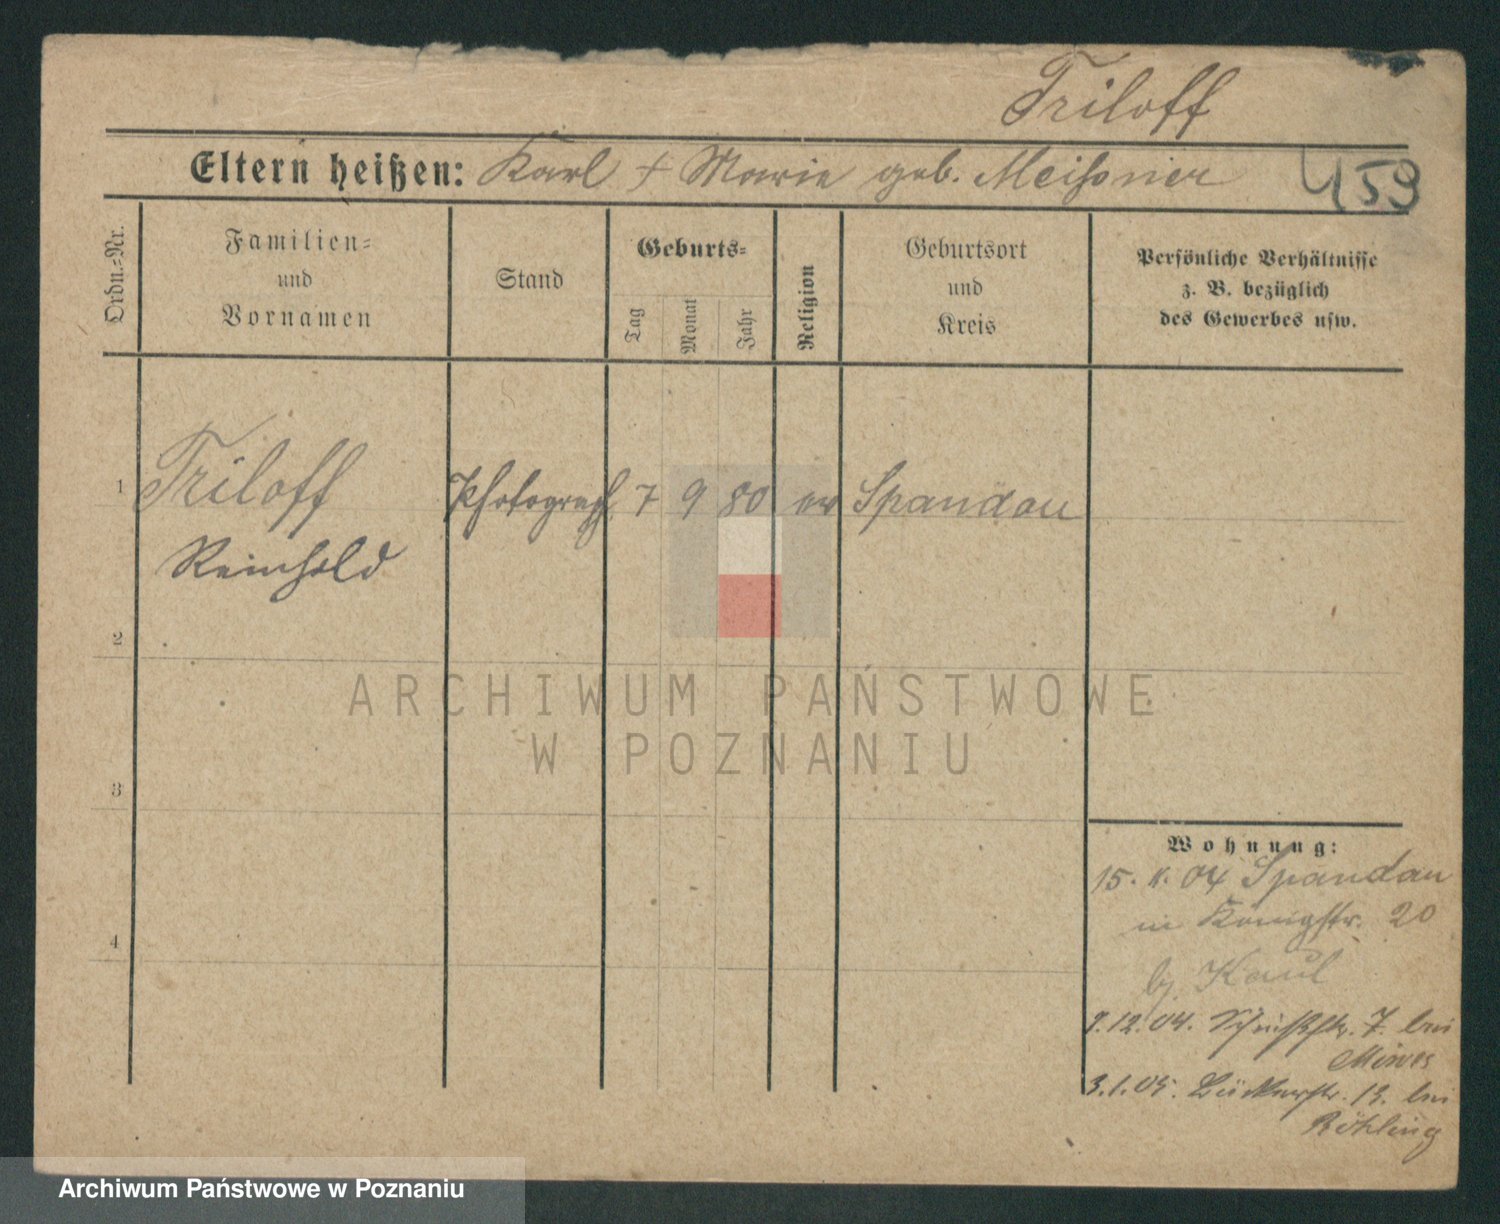 Triloff
Eltern heißen: Karl + Marie geb. Meißner
459
Ordn.-Nr.
Familien-
und
Vornamen
Stand
Geburts-
Tag
Monat
Jahr
Religion
Geburtsort
und
Kreis
Persönliche Verhältnisse
z. B. bezüglich
des Gewerbes usw.
1 Triloff Photograph 7 9 80 ev Spandau
Reinhold
2
3
4
ARCHIWUM PAŃSTWOWE
W POZNANIU
Wohnung:
15. 11. 04 Spandau
in Königstr. 20
bj. Kaul
9.12.04. 7. bei
3.1.05. Bäckerstr. 13. bei
Röhling
Archiwum Państwowe w Poznaniu